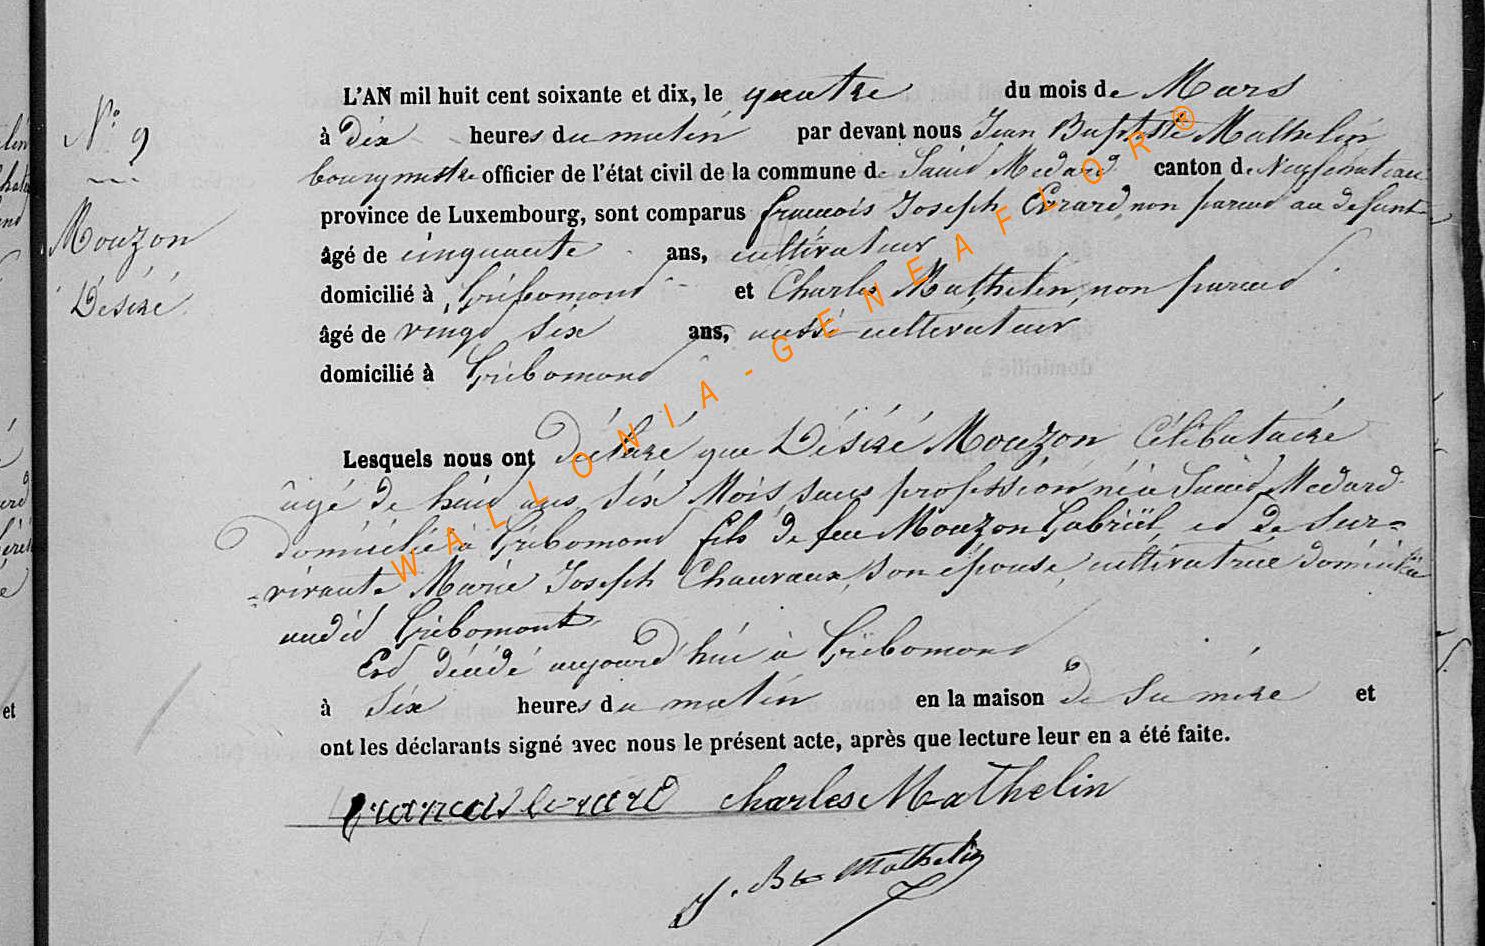 N° 9
Mouzon
Désiré
L'AN mil huit cent soixante et dix, le quatre du mois de Mars
à dix heures du matin par devant nous Jean Baptiste Mathelin
bourgmestre officier de l'état civil de la commune de Saint Médard canton de Neufchateau
province de Luxembourg, sont comparus françois Joseph Evrard, non parent au defunt
âgé de cinquante ans, cultivateur
domicilié à Gribomont et Charles Mathelin, non parent
âgé de vingt six ans, aussi cultivateur
domicilié à Gribomont
Lesquels nous ont déclaré que Désiré Mouzon Célibataire
âgé de huit ans six Mois sans profession né à Saint Medard
domicilié à Gribomont fils de feu Mouzon Gabriël, et de sur=
=vivante Marie Joseph Chauvaux, son épouse, cultivatrice domiciliée
audit Gribomont
Est décédé aujourd'hui à Gribomont
à six heures du matin en la maison de sa mère et
ont les déclarants signé avec nous le présent acte, après que lecture leur en a été faite.
francois Evrard Charles Mathelin
J. Bte Mathelin
WALLONIA-GENEAFLOR®
et